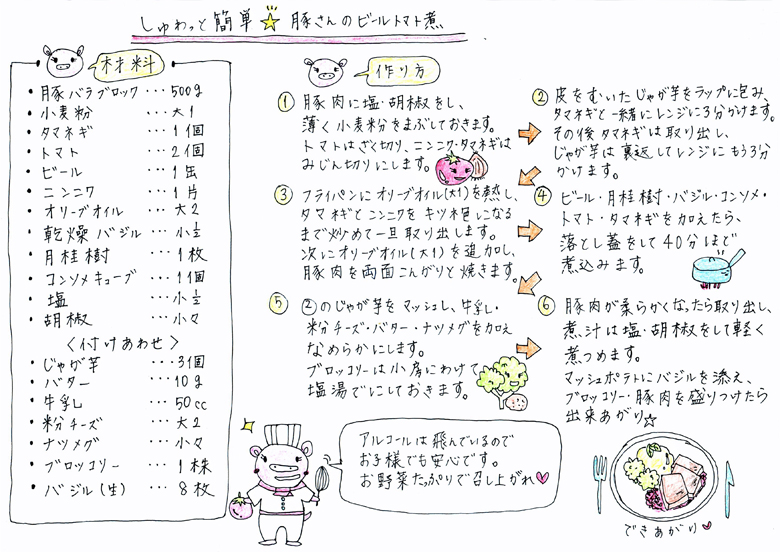 しゅわっと簡単☆豚さんのビールトマト煮
材料
・豚バラブロック・・・500g
・小麦粉・・・大1
・タマネギ・・・1個
・トマト・・・2個
・ビール・・・1缶
・ニンニク・・・1片
・オリーブオイル・・・大2
・乾燥バジル・・・小½
・月桂樹・・・1枚
・コンソメキューブ・・・1個
・塩・・・小½
・胡椒・・・小々
<付けあわせ>
・じゃが芋・・・3個
・バター・・・10g
・牛乳・・・50cc
・粉チーズ・・・大2
・ナツメグ・・・小々
・ブロッコリー・・・1株
・バジル(生)・・・8枚
作り方
① 豚肉に塩・胡椒をし、
薄く小麦粉をまぶしておきます。
トマトはざく切り、ニンニク・タマネギは
みじん切りにします。
② 皮をむいたじゃが芋をラップに包み、
タマネギと一緒にレンジに3分かけます。
その後タマネギは取り出し、
じゃが芋は裏返してレンジにもう3分
かけます。
③ フライパンにオリーブオイル(大1)を熱し、
タマネギとニンニクをキツネ色になる
まで炒めて一旦取り出します。
次にオリーブオイル(大1)を追加し、
豚肉を両面こんがりと焼きます。
④ ビール・月桂樹・バジル・コンソメ・
トマト・タマネギを加えたら、
落とし蓋をして40分ほど
煮込みます。
⑤ ②のじゃが芋をマッシュし、牛乳・
粉チーズ・バター・ナツメグを加え
なめらかにします。
ブロッコリーは小房にわけて
塩湯でにしておきます。
⑥ 豚肉が柔らかくなったら取り出し、
煮汁は塩・胡椒をして軽く
煮つめます。
マッシュポテトにバジルを添え、
ブロッコリー・豚肉を盛りつけたら
出来あがり☆
アルコールは飛んでいるので
お子様でも安心です。
お野菜たっぷりで召し上がれ♥
できあがり♥